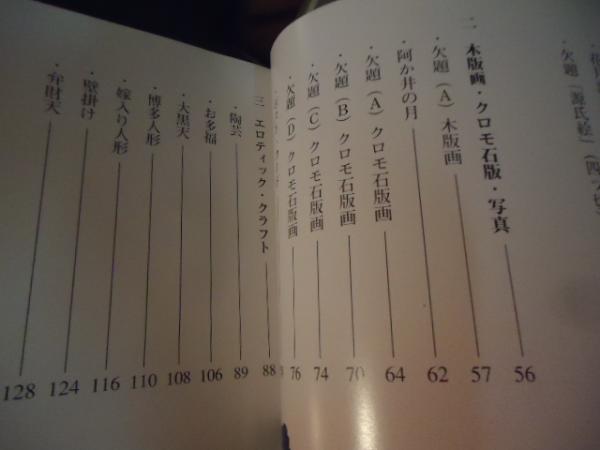 欠題「源氏絵」（四ツ切）
二 木版画・クロモ石版・写真 56
・欠題（A）木版画 57
・阿か井の月 62
・欠題（A）クロモ石版画 64
・欠題（B）クロモ石版画 70
・欠題（C）クロモ石版画 74
・欠題（D）クロモ石版画 76
三 エロティック・クラフト 88
・陶芸 89
・お多福 106
・大黒天 108
・博多人形 110
・嫁入り人形 116
・壁掛け 124
・弁財天 128